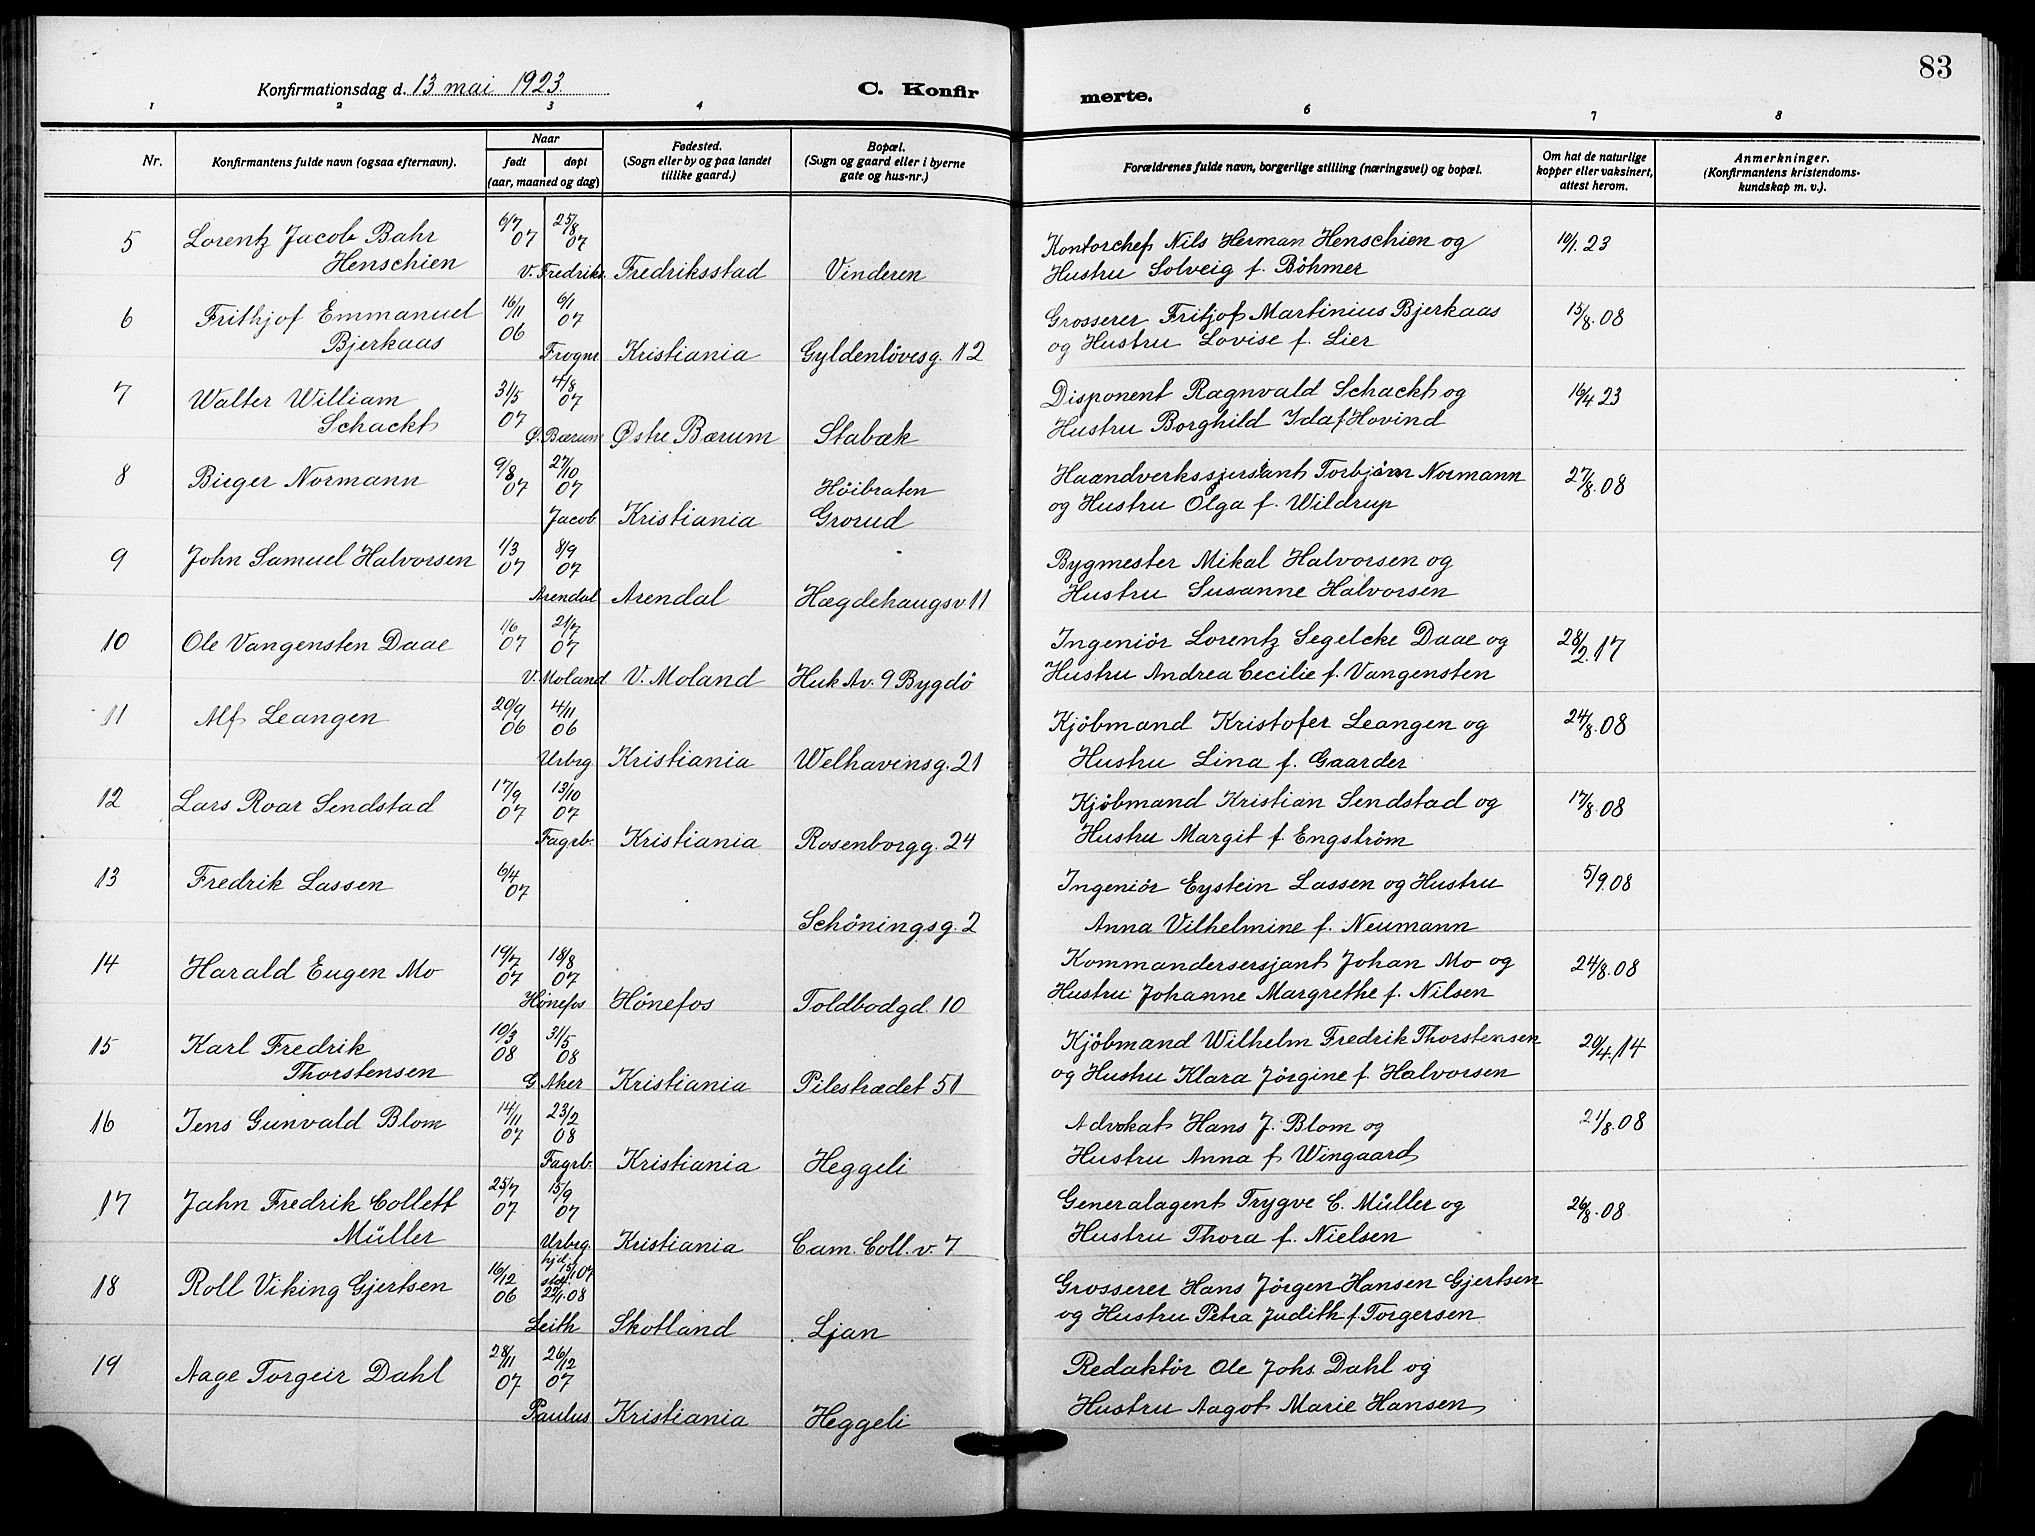 83
Konfirmationsdag d. 13 mai 1923.
C. Konfirmerte.
1 2 3 4 6 7 8
Nr. Konfirmantens fulde navn (ogsaa efternavn). Naar født døpt (aar, maaned og dag) Fødested. (Sogn eller by og paa landet tillike gaard.) Bopæl. (Sogn og gaard eller i byerne gate og hus-nr.) Forældrenes fulde navn, borgerlige stilling (næringsvei) og bopæl. Om hat de naturlige kopper eller vaksinert, attest herom. Anmerkninger. (Konfirmantens kristendoms-kundskap m. v.).
5 Lorentz Jacob Bahr 6/7 07 25/8 07 Kontorchef Nils Herman Henschien og 10/1 23
Henschien V. Fredriks. Fredriksstad Vinderen Hustru Solveig f. Böhmer
6 Frithjof Emmanuel 16/11 06 6/1 07 Grosserer Fritjof Martinius Bjerkaas 15/8.08
Bjerkaas Frogner Kristiania Gyldenlövesg. 12 og Hustru Lovise f. Lier
7 Walter William 31/5 07 4/8 07 Disponent Ragnvald Schackt og 16/4 23
Schackt Ø. Bærum Østre Bærum Stabæk Hustru Borghild Ida f Hovind
8 Birger Normann 9/8 07 27/10 07 Høibraten Haandverkssjersant Torbjørn Normann 27/8.08
Jacob Kristiania Grorud og Hustru Olga f. Wildrup
9 John Samuel Halvorsen 1/3 07 8/9 07 Bygmester Mikal Halvorsen og
Arendal Arendal Hægdehaugsv. 11 Hustru Susanne Halvorsen
10 Ole Vangensten Daae 1/6 07 21/7 07 Ingeniör Lorentz Segelcke Daae og 28/2.17
V. Moland V. Moland Huk Av. 9 Bygdö Hustru Andrea Cecilie f. Vangensten
11 Alf Leangen 20/9 06 4/11 06 Kjöbmand Kristofer Leangen og 24/8.08
Urbrg. Kristiania Welhavensg. 21 Hustru Lina f. Gaarder
12 Lars Roar Sendstad 17/9 07 13/10 07 Kjöbmand Kristian Sendstad og 17/8.08
Fagrb. Kristiania Rosenborgg. 24 Hustru Margit f. Engström
13 Fredrik Lassen 6/4 07 Ingeniör Eystein Lassen og Hustru 5/9.08
Schöningsg. 2 Anna Vilhelmine f. Neumann
14 Harald Eugen Mo 19/7 07 18/8 07 Kommandersersjant Johan Mo og 24/8.08
Hönefos Hönefos Toldbodgd. 10 Hustru Johanne Margrethe f. Nilsen
15 Karl Fredrik 10/3 08 31/5 08 Kjöbmand Wilhelm Fredrik Thorstensen 20/4.14
Thorstensen G Aker Kristiania Pilestrædet 51 og Hustru Klara Jörgine f. Halvorsen
16 Jens Gunvald Blom 14/11 07 23/2 08 Advokat Hans J. Blom og 21/8.08
Fagrb. Kristiania Heggeli Hustru Anna f Wingaard
17 Jahn Fredrik Collett 25/7 07 15/9 07 Generalagent Trygve C. Müller og 26/8.08
Müller Urbrg. Kristiania Cam. Coll. v. 7 Hustru Thora f. Nielsen
18 Roll Viking Gjertsen 16/12 06 hj. 15/1 07 22/1.08 Grosserer Hans Jörgen Hansen Gjertsen
Leith Skotland Ljan og Hustru Petra Judith f. Torgersen
19 Aage Torgeir Dahl 28/11 07 26/12 07 Redaktör Ole Johs. Dahl og
Paulus Kristiania Heggeli Hustru Aagot Marie Hansen